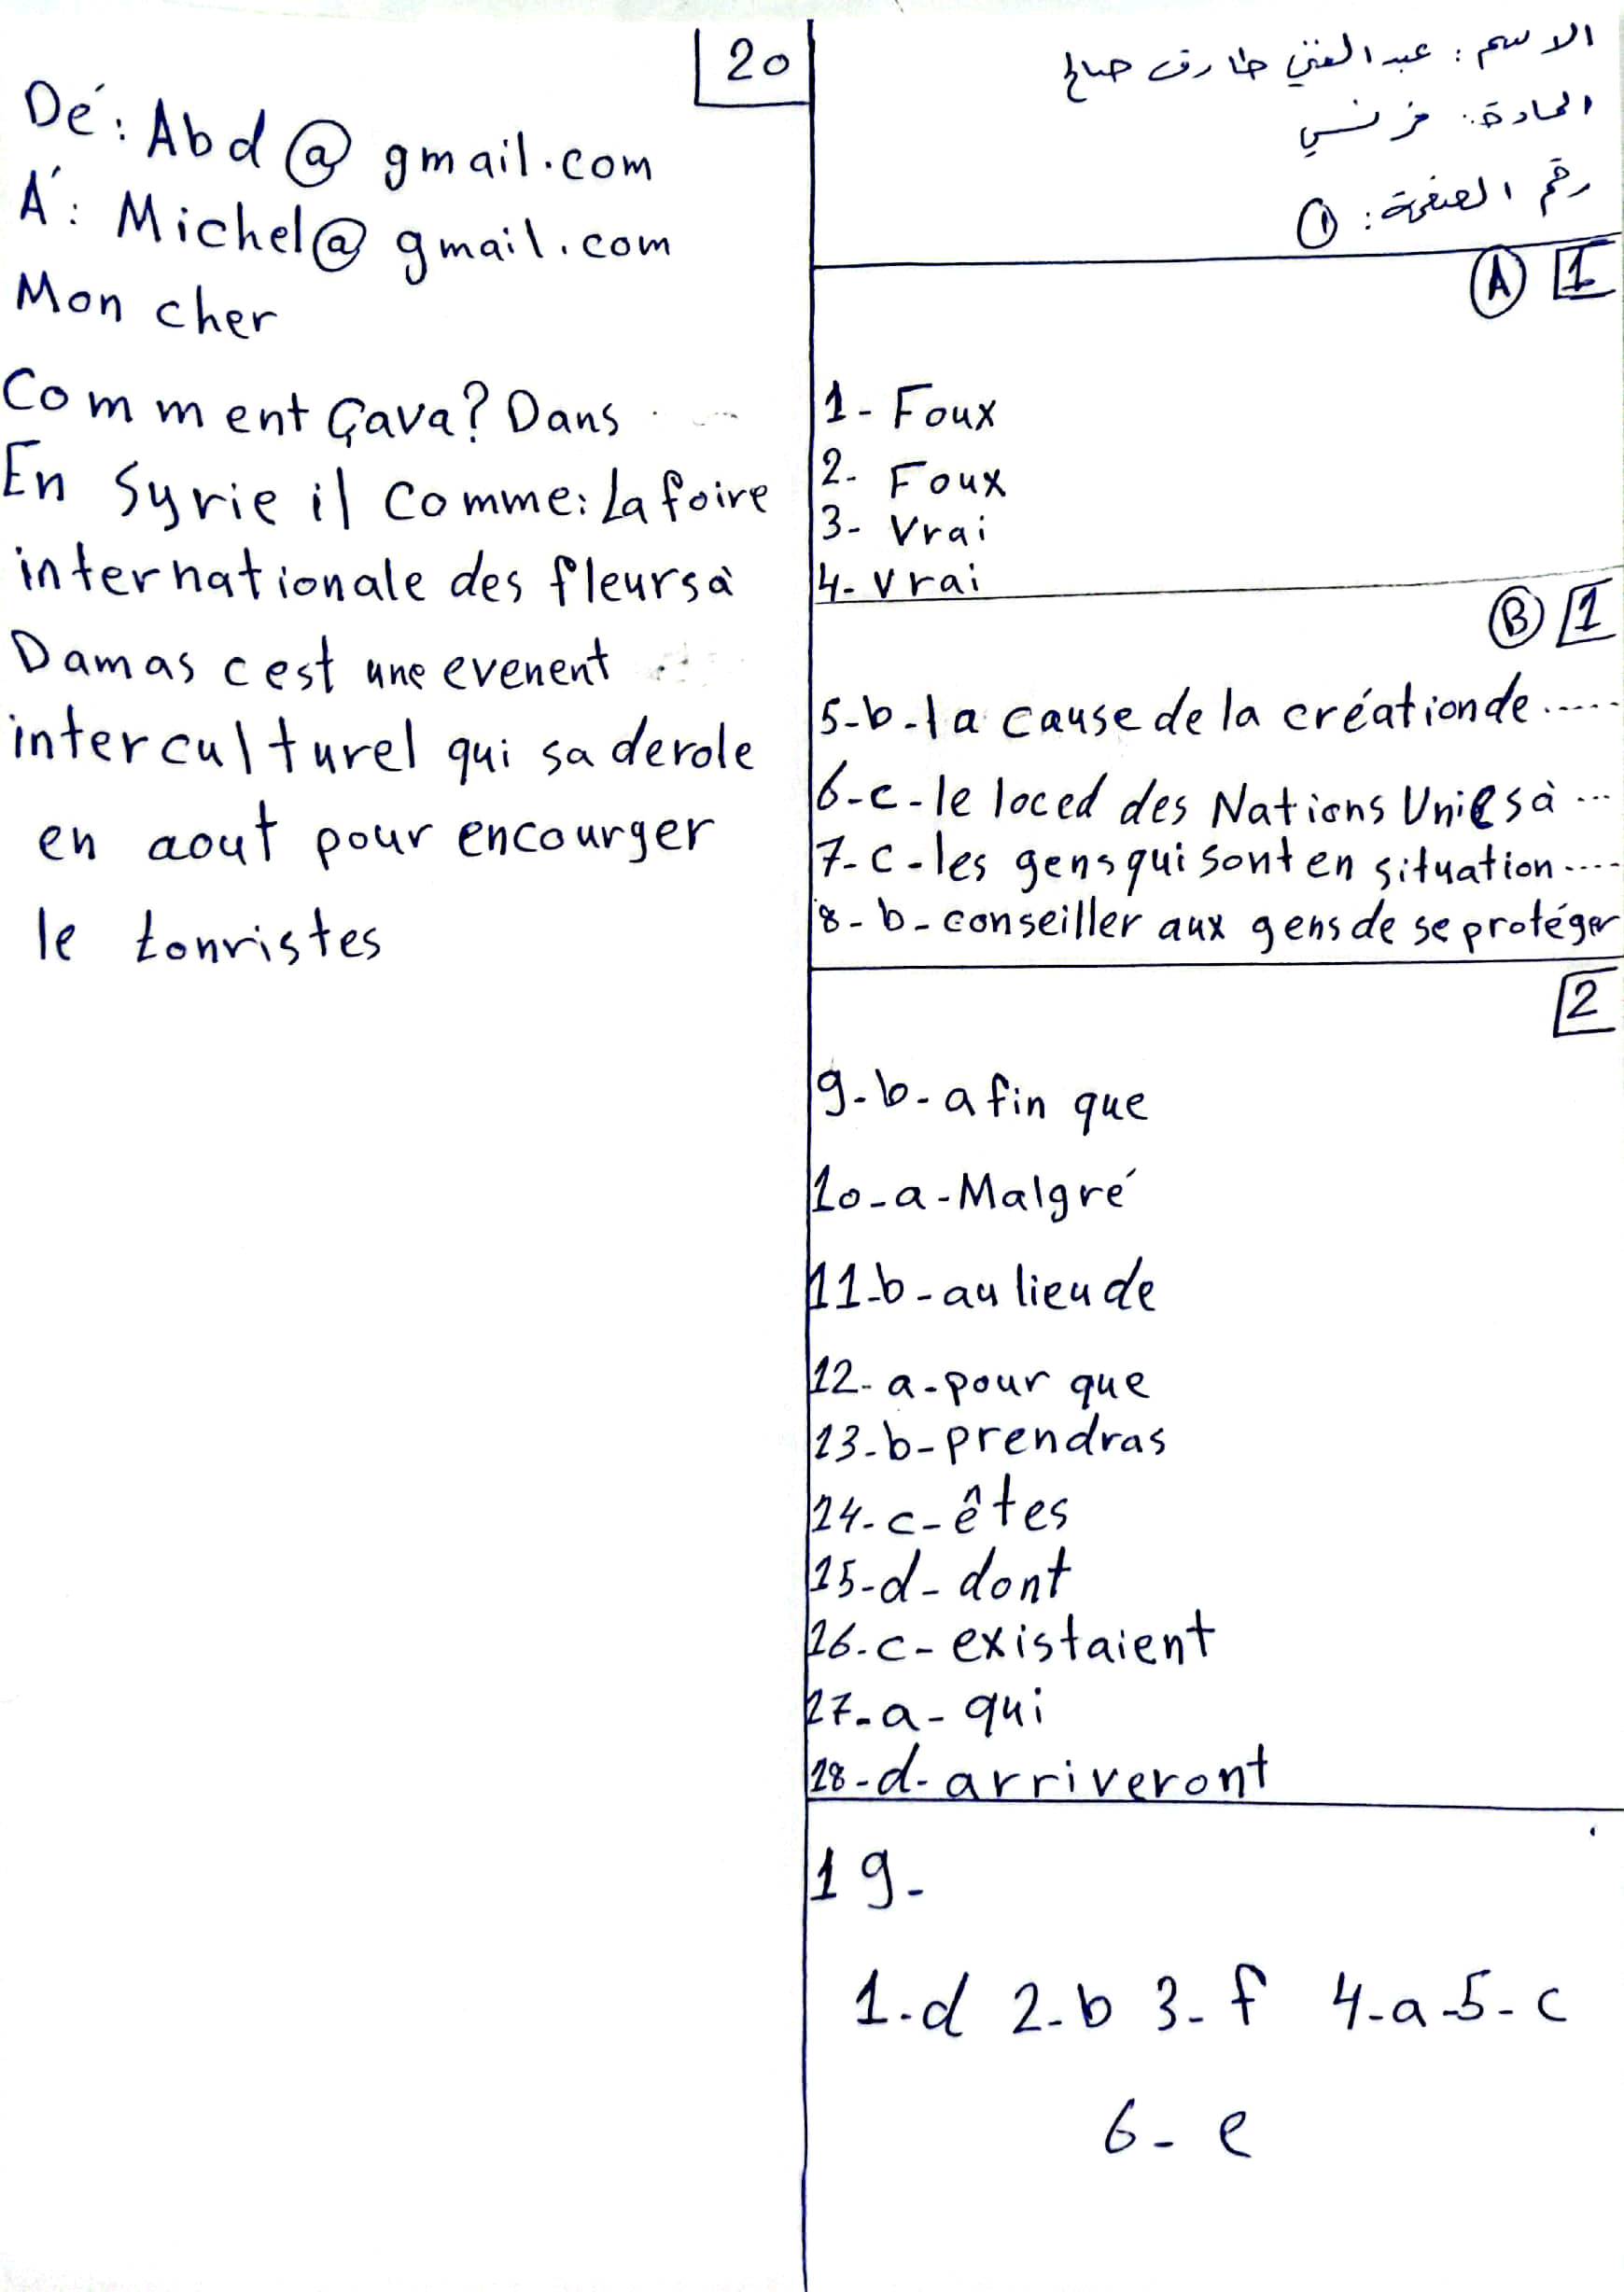 الاسم : عبد الغني طارق صالح
المادة : فرنسي
رقم الصفحة : 1
A 1
1- Foux
2- Foux
3- Vrai
4- vrai
B 1
5-b-la cause de la créationde .....
6-c-le loced des Nations Unies à ...
7-c-les gens qui sont en situation ....
8-b-conseiller aux gens de se protéger
2
9-b-afin que
10-a-Malgré
11-b-au lieu de
12-a-pour que
13-b-prendras
14-c-êtes
15-d-dont
16-c-existaient
17-a-qui
18-d-arriveront
19-
1-d 2-b 3-f 4-a-5-c
6-e
20
Dé: Abd@gmail.com
Á: Michel@gmail.com
Mon cher
Comment Çava? Dans
En Syrie il comme: la foire
internationale des fleurs à
Damas cest une evenent
interculturel qui sa derole
en aout pour encourger
le tonristes